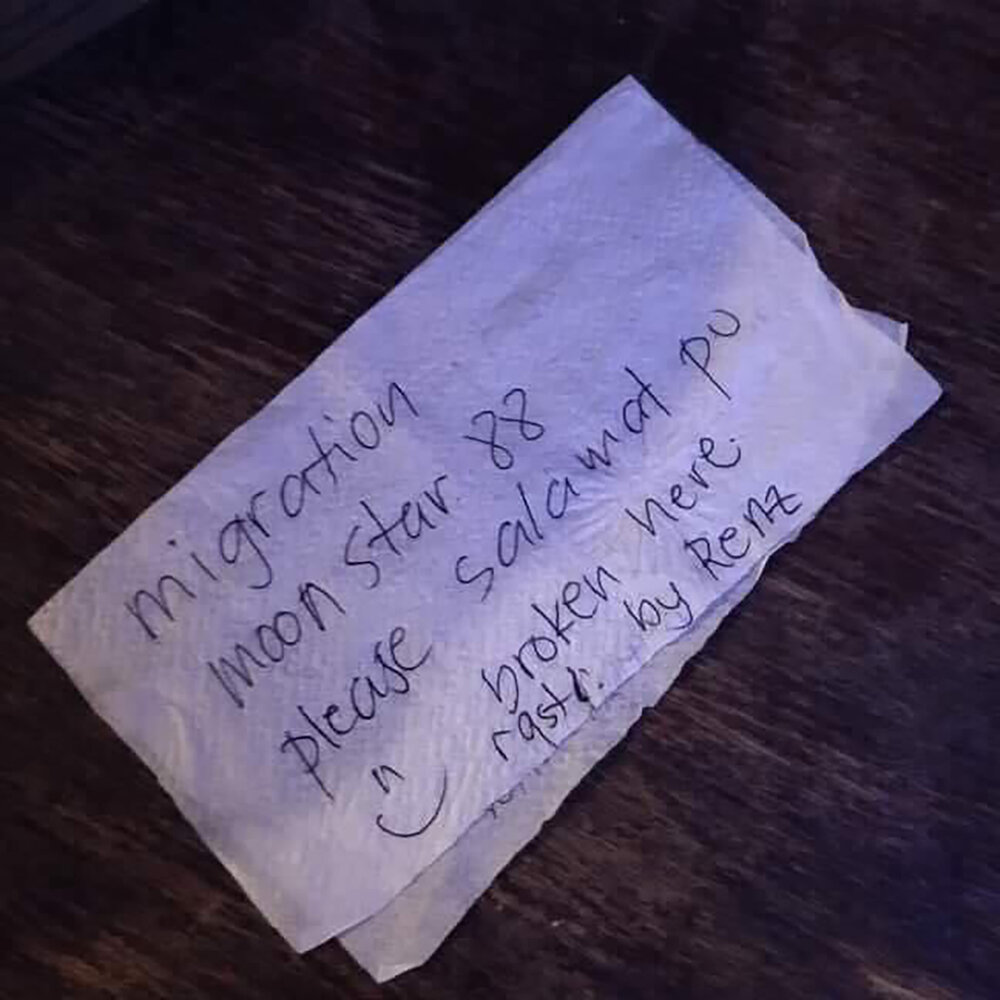 migration
moon star 88
please salamat po
broken here.
rasta. by Renz